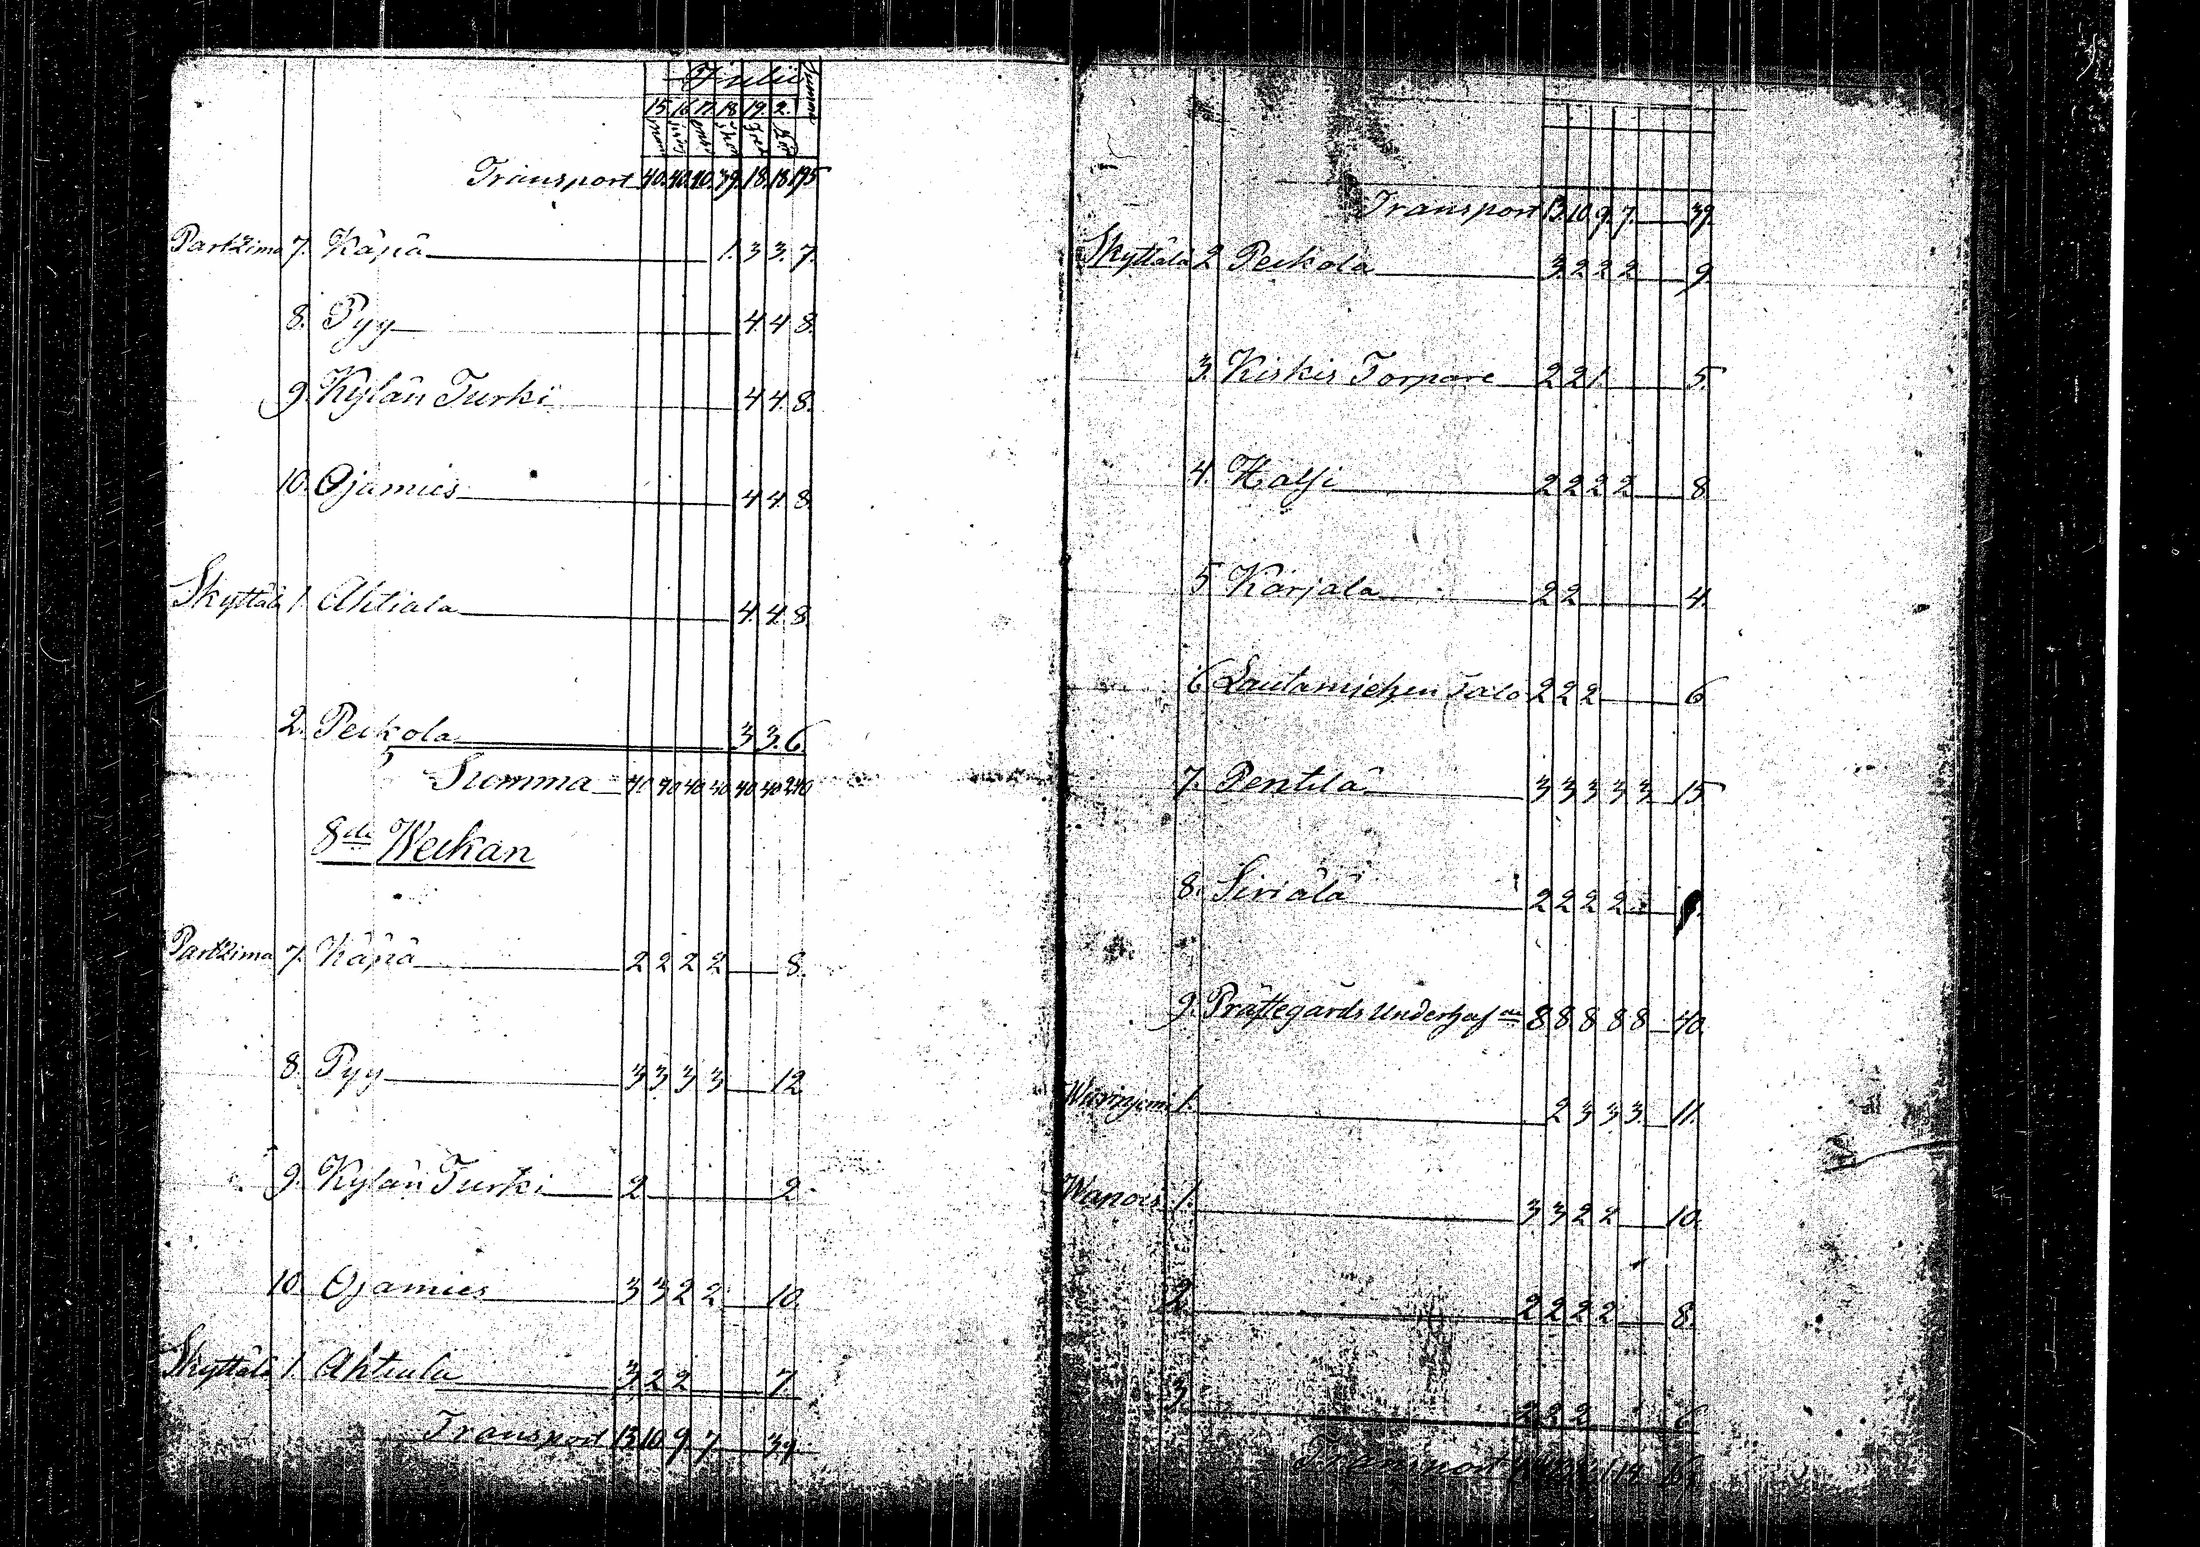 Julii Summa
15. 16. 17. 18. 19. 2.
Transport 40. 40. 40. 39. 18. 18. 195
Partzima 7. Käpä 1. 3 3. 7.
8. Pyy 4 4 8.
9. Kylän Turki 4 4. 8.
10. Ojamies 4 4. 8
Skyttälä 1 Ahtiala 4. 4. 8.
2. Peikola 3 3. 6.
Summa 40 40 40 40 40 40 240
8de Weckan
Partzima 7. Käpä 2 2 2 2 8.
8. Pyy 3 3 3 3 12
9. Kylän Turki 2 2.
10. Ojamies 3 3 2 2 10.
Skyttälä 1. Ahtiala 3 2 2 7.
Transport 13. 10. 9. 7. 39.
Transport 13. 10. 9. 7. 39.
Skyttälä 2 Peikola 3. 2 2 2 9
3. Kiskis Torpare 2 2 1. 5.
4. Halsi 2 2 2 2 8
5 Karjala 2 2 4.
6 Lautamiehen Talo 2 2 2 6
7. Pentilä 3 3 3 3 3 15
8. Siriälä 2 2 2 2
9. Prästegårds Underhaf 8 8 8 8 8 40.
1. 2 3 3 3. 11.
Wanois 1. 3 3 2 2 10.
2. 2 2 2 2 8.
3. 2 2 2 6
Transport